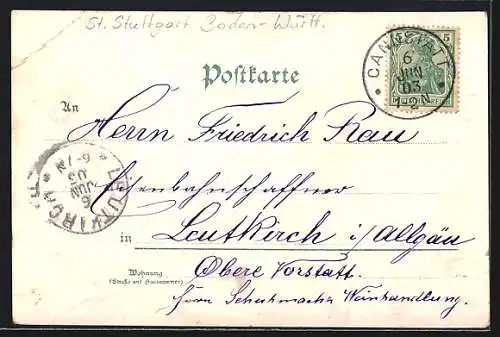 St. Stuttgart Baden-Württ.
Postkarte
CANNSTATT
6
JUN
03
1-2 N
5
An
Herrn Friedrich Rau
Eisenbahnschaffner
in Leutkirch i/Allgäu
Obere Vorstatt.
Herrn Schuhmacher Weinhandlung.
Wohnung
(Straße und Hausnummer)
LEUTKIRCH
6
JUN
03
6-7 N